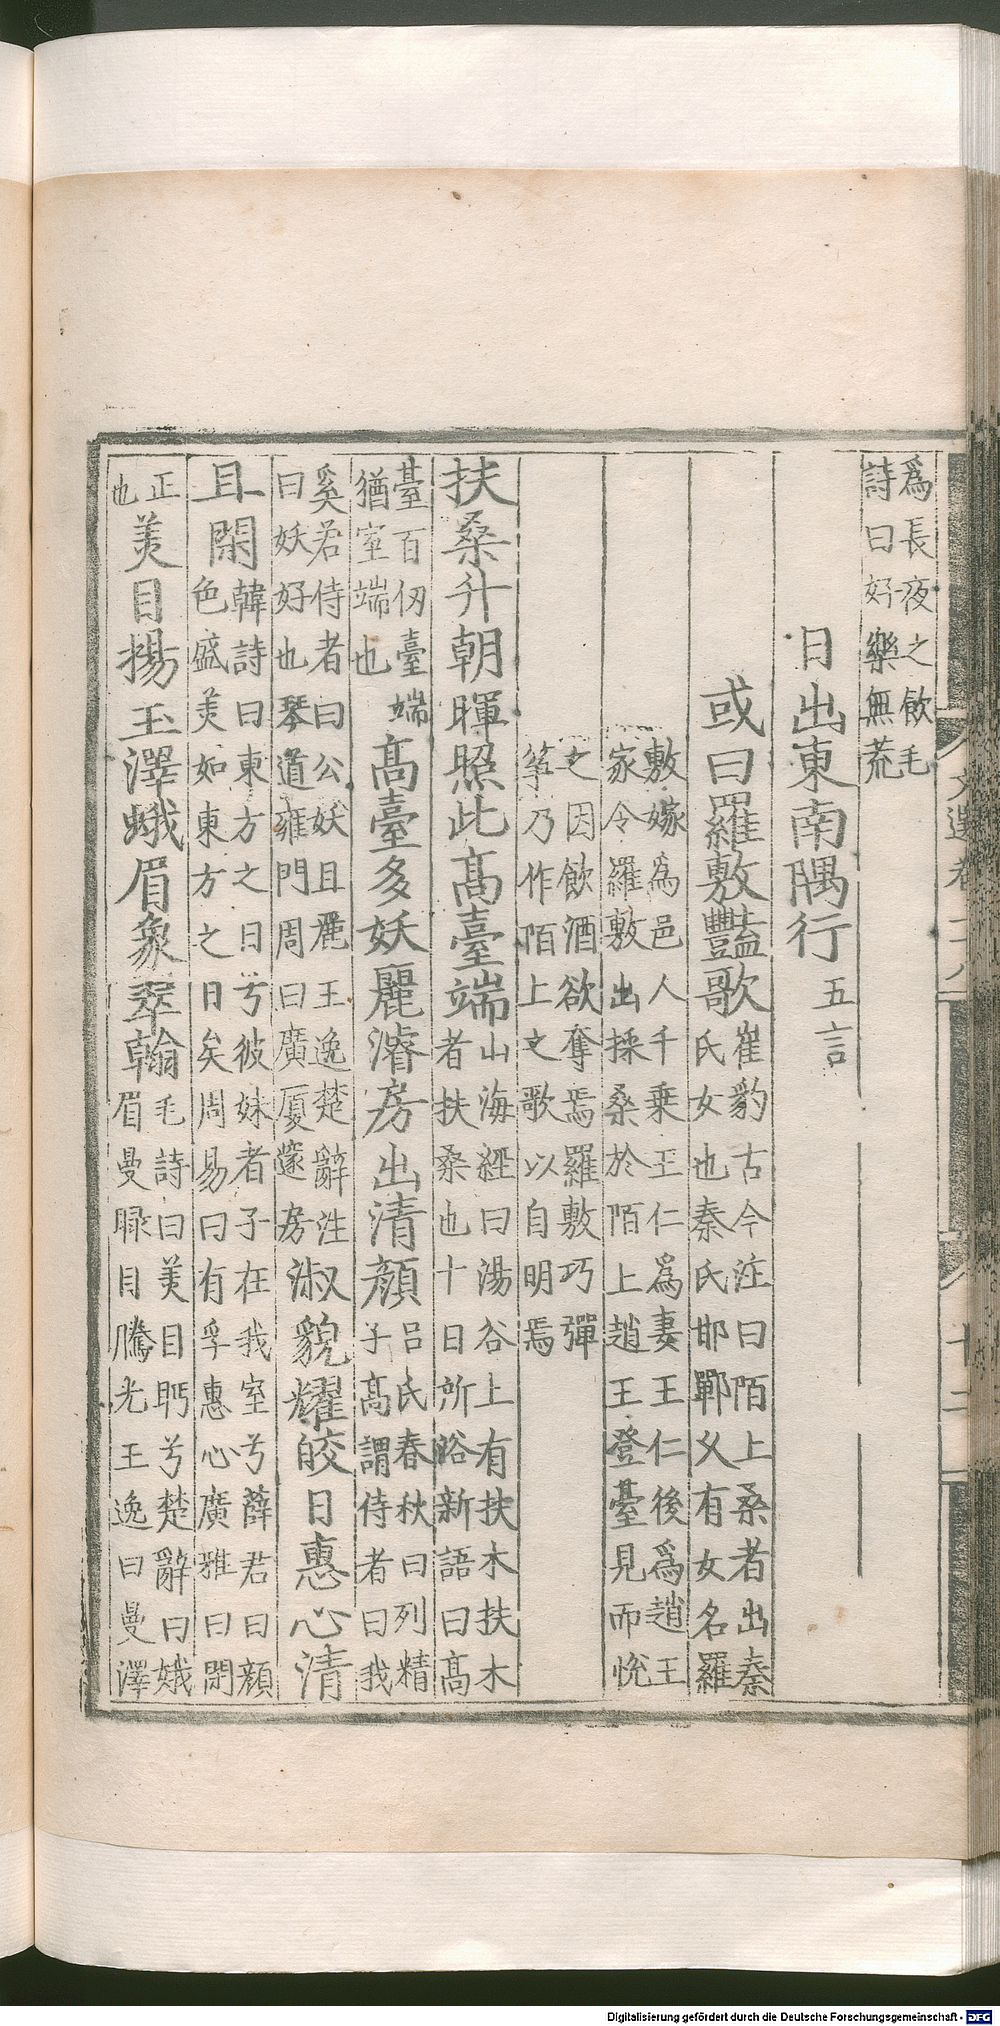 爲長夜之飲毛
詩曰好樂無荒
日出東南隅行五言
或曰羅敷豔歌崔豹古今注曰陌上桑者出秦
氏女也秦氏邯鄲人有女名羅
敷嫁爲邑人千乗王仁爲妻王仁後爲趙王
家令羅敷出採桑於陌上趙王登臺見而悅
之因飲酒欲奪焉羅敷巧彈
筝乃作陌上之歌以自明焉
扶桑升朝暉照此髙臺端山海經曰湯谷上有扶木扶木
者扶桑也十日所浴新語曰髙
臺百仞臺端
猶室端也髙臺多妖麗濬房出清顔吕氏春秋曰列精
子髙謂侍者曰我
奚若侍者曰公妖且麗王逸楚辭注
曰妖好也琴道雍門周曰廣厦邃房淑貌耀皎日惠心清
且閑韓詩曰東方之日兮彼姝者子在我室兮薛君曰顔
色盛美如東方之日矣周易曰有孚惠心廣雅曰閑
正
也美目揚玉澤蛾眉象翠翰毛詩曰美目眄兮楚辭曰娥
眉曼睩目騰光王逸曰曼澤
文選卷二十八
十二
Digitalisierung gefördert durch die Deutsche Forschungsgemeinschaft - DFG